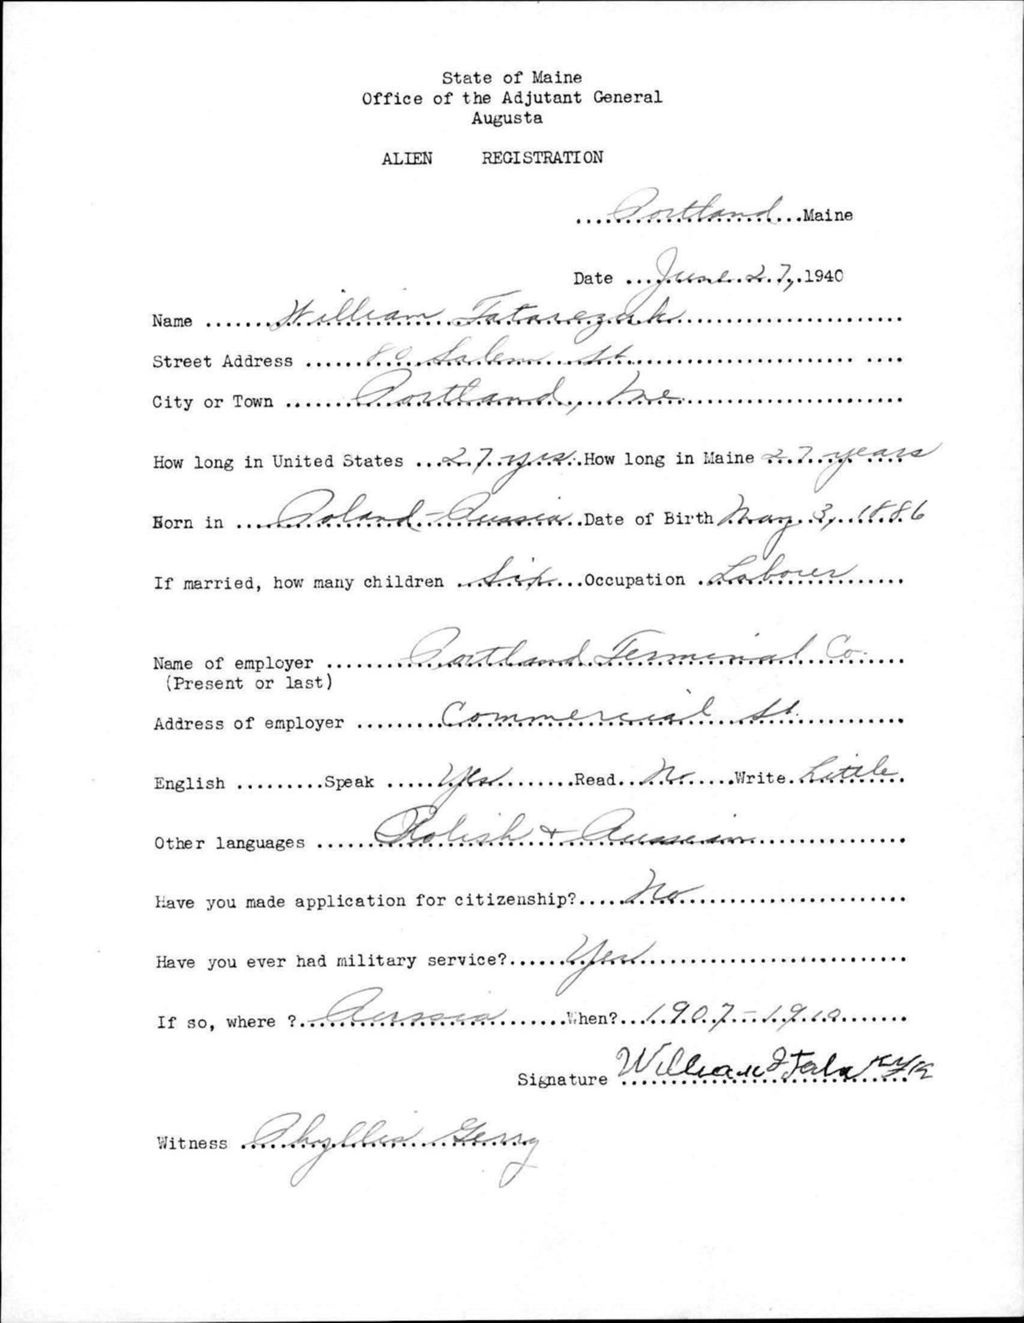 State of Maine
Office of the Adjutant General
Augusta
ALIEN REGISTRATION
....Portland...Maine
Date ...June 27,.1940
Name .......William Tatarczuk......................
Street Address ......80 Salem St.......................
City or Town ......Portland, Me.......................
How long in United States ...27 yrs..How long in Maine 27 years
Born in ....Poland-Russia..Date of Birth May 3, 1886
If married, how many children ..Six...Occupation .Laborer......
Name of employer ........Portland Terminal Co.....
(Present or last)
Address of employer ........Commercial St............
English .........Speak .....Yes.......Read..No.....Write.Little.
Other languages ......Polish + Russian..............
Have you made application for citizenship?.....No.......................
Have you ever had military service?......Yes..........................
If so, where ?..Russia........When?...1907-1910.......
Signature William
Witness .Phyllis Gerry